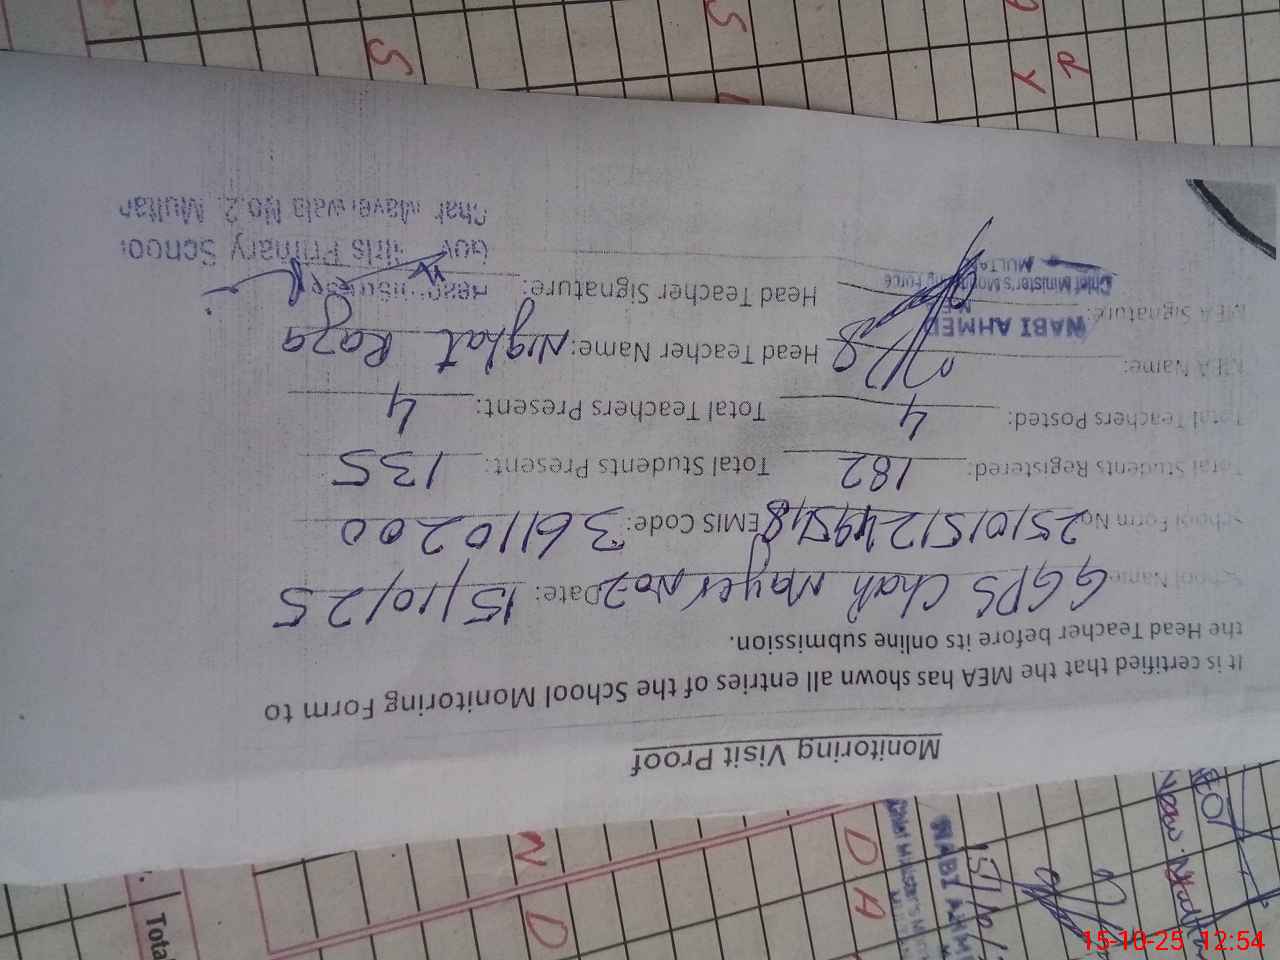 Monitoring Visit Proof
It is certified that the MEA has shown all entries of the School Monitoring Form to
the Head Teacher before its online submission.
School Name GGPS Chah Mayer No2 Date: 15/10/25
School Form No. EMIS Code: 36110200
Total Students Registered: 182 Total Students Present: 135
Total Teachers Posted: 4 Total Teachers Present: 4
MEA Name: Head Teacher Name: Nighat Raza
NABI AHMED
MEA Signature: Head Teacher Signature:
Chief Minister's Monitoring Force
MULTAN
Gov Girls Primary School
Chah Mayerwala No.2 Multan
Total
S
S
R
Y
N
D
D
A
NABI AHMED
15-10-25 12:54